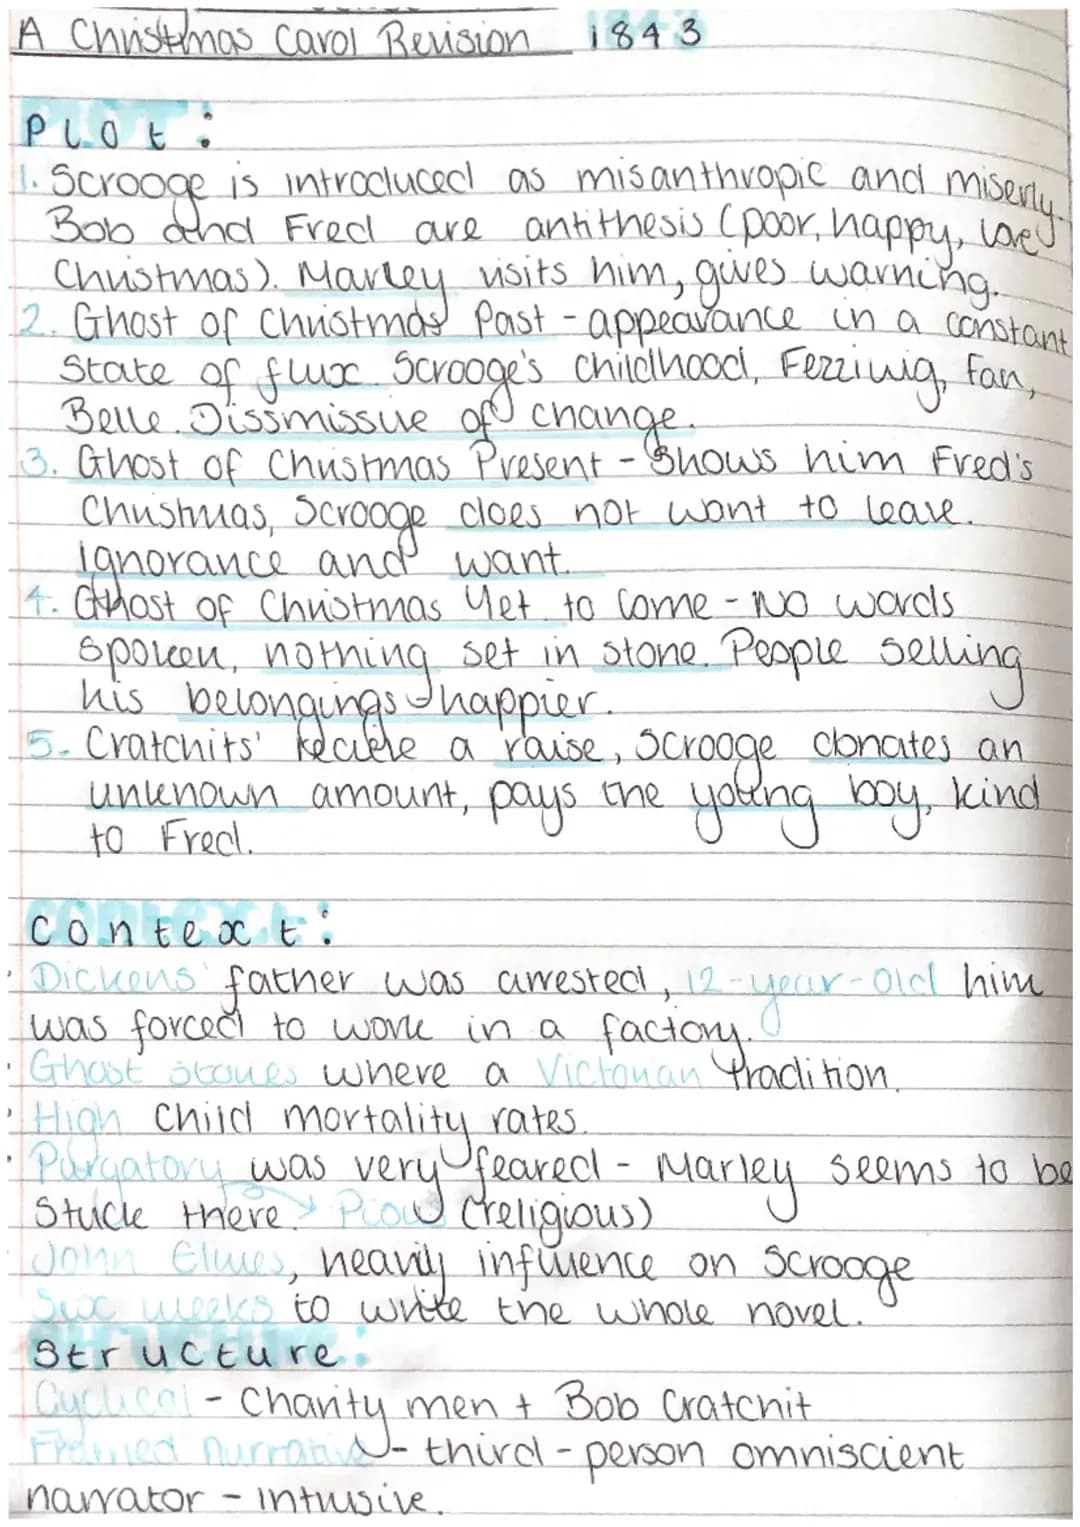 A Christmas Carol Revision 1843
Plot:
1. Scrooge is introduced as misanthropic and miserly.
Bob and Fred are antithesis (poor, happy, love
Christmas). Marley visits him, gives warning.
2. Ghost of Christmas Past - appearance in a constant
State of flux. Scrooge's childhood, Fezziwig, Fan,
Belle. Dissmissive of change.
3. Ghost of Christmas Present - Shows him Fred's
Christmas, Scrooge does not want to leave.
ignorance and want.
4. Ghost of Christmas Yet to Come - No words
spoken, nothing set in stone. People selling
his belongings happier.
5. Cratchits' receive a raise, Scrooge donates an
unknown amount, pays the young boy, kind
to Fred.
Context:
Dickens' father was arrested, 12-year-old him
was forced to work in a factory.
Ghost stories where a Victorian tradition.
High child mortality rates.
Purgatory was very feared - Marley seems to be
Stuck there. → Pious (religious)
John Elwes, heavily influence on Scrooge
Six weeks to write the whole novel.
Structure:
Cyclical - Charity men + Bob Cratchit
Framed narrative - third-person omniscient
narrator - intrusive.